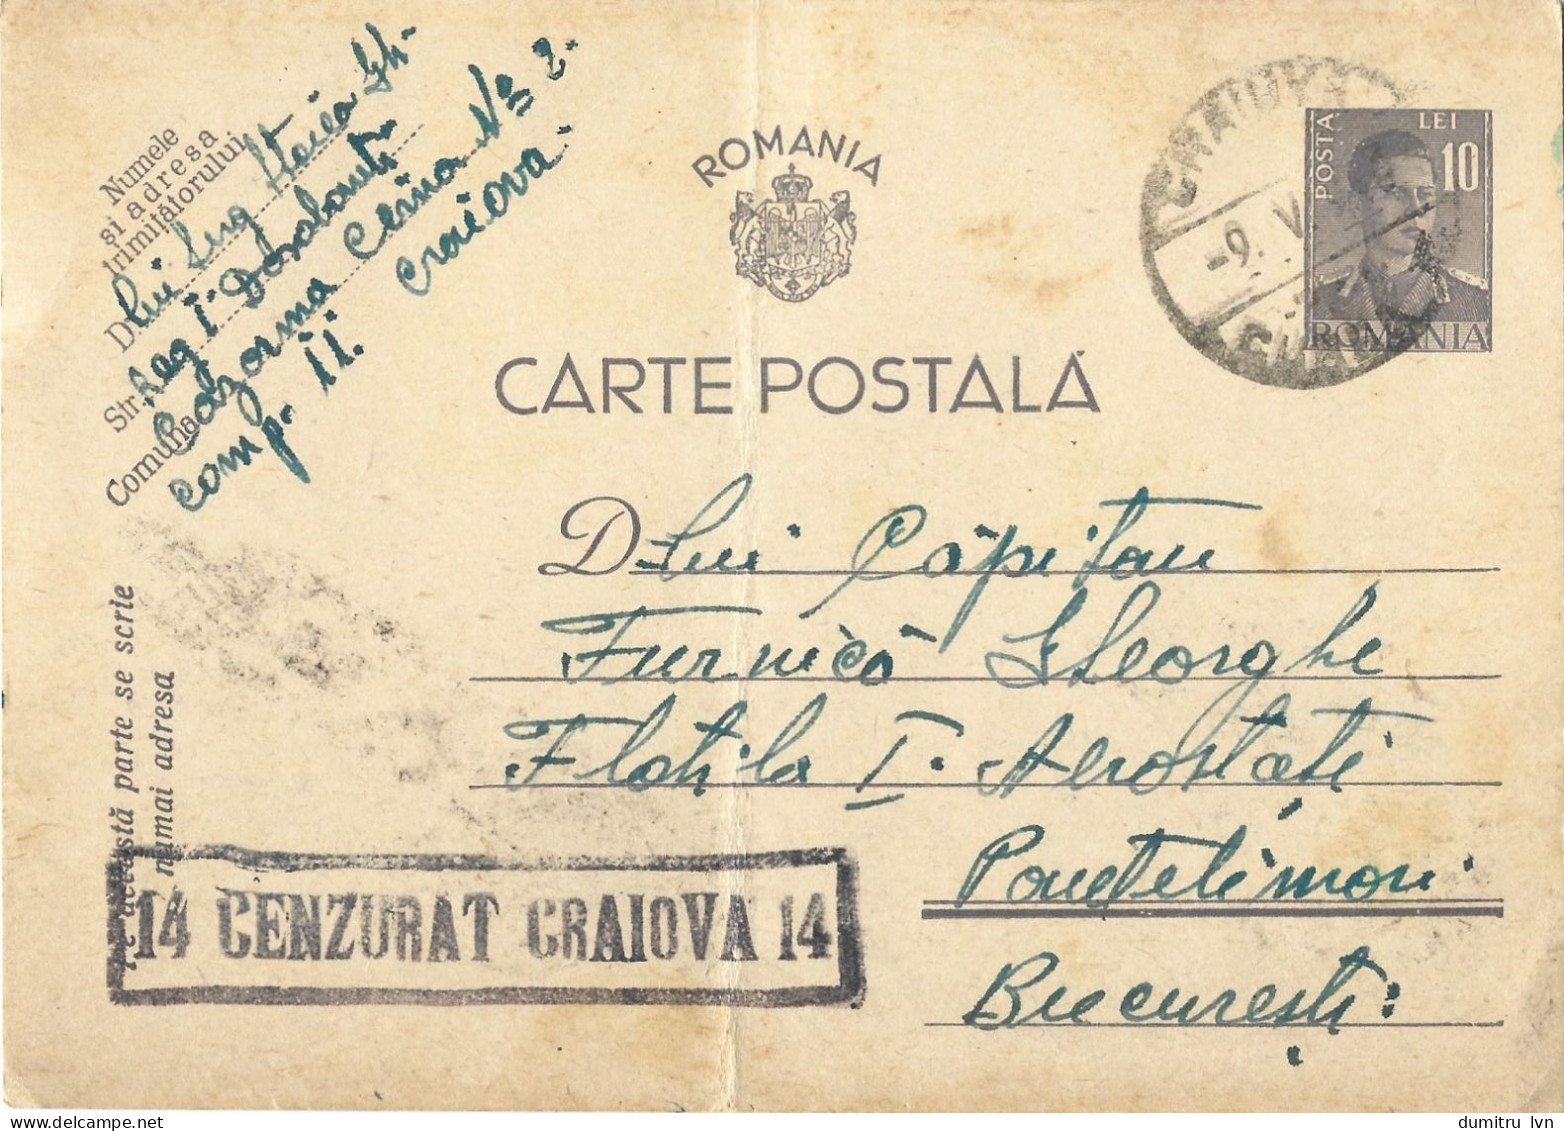 Numele
și adresa
trimițătorului
Dlui Ing Stoica Gh.
Str. Reg I. Dorobanți
Comuna Cazarma Cerna No 2.
comp. II. Craiova
ROMANIA
CARTE POSTALĂ
POSTA
LEI
10
ROMANIA
CRAIOVA
-9. V
Dlui Căpitan
Furnică Gheorghe
Flotila I. Aerostați
Pantelimon
București
Pe această parte se scrie
numai adresa
14 CENZURAT CRAIOVA 14
delcampe.net
dumitru lvn